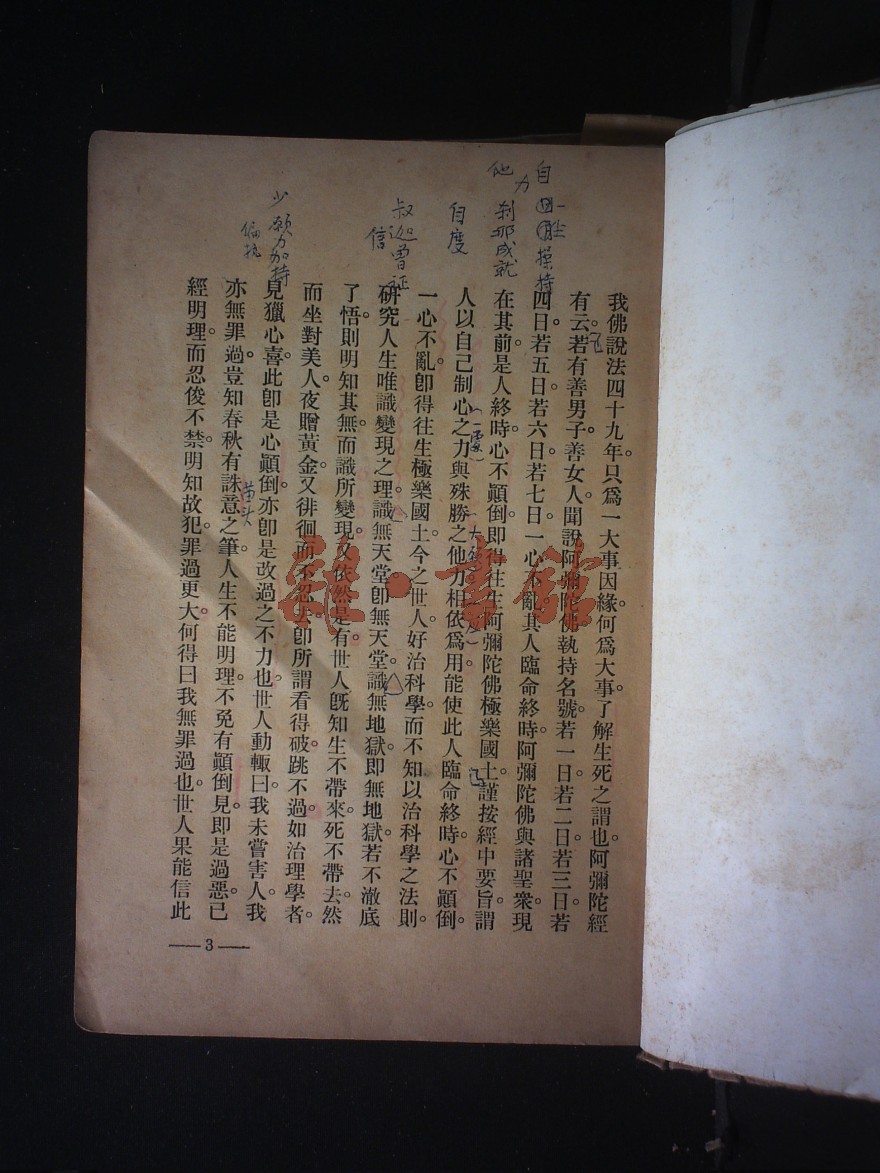 我佛說法四十九年。只爲一大事因緣。何爲大事。了解生死之謂也。阿彌陀經
有云。若有善男子。善女人。聞說阿彌陀佛。執持名號。若一日。若二日。若三日。若
四日。若五日。若六日。若七日。一心不亂。其人臨命終時。阿彌陀佛。與諸聖衆。現
在其前。是人終時。心不顚倒。即得往生阿彌陀佛極樂國土。謹按經中要旨。謂
人以自己制心之力。與殊勝之他力。相依爲用。能使此人臨命終時。心不顚倒。
一心不亂。卽得往生極樂國土。今之世人。好治科學。而不知以治科學之法則。
研究人生唯識變現之理。識無天堂。卽無天堂。識無地獄。即無地獄。若不澈底
了悟。則明知其無。而識所變現。又依然是有。世人旣知生不帶來。死不帶去。然
而坐對美人。夜贈黃金。又徘徊而不忍去。卽所謂看得破。跳不過。如治理學者。
見獵心喜。此卽是心顚倒。亦卽是改過之不力也。世人動輒曰。我未嘗害人。我
亦無罪過。豈知春秋有誅意之筆。人生不能明理。不免有顚倒見。即是過惡。已
經明理。而忍俊不禁。明知故犯。罪過更大。何得曰我無罪過也。世人果能信此
— 3 —
自
操持
他力
刹那成就
自度
叔迦曾证
信
少願力加持
偏执
苗头
雜·書館